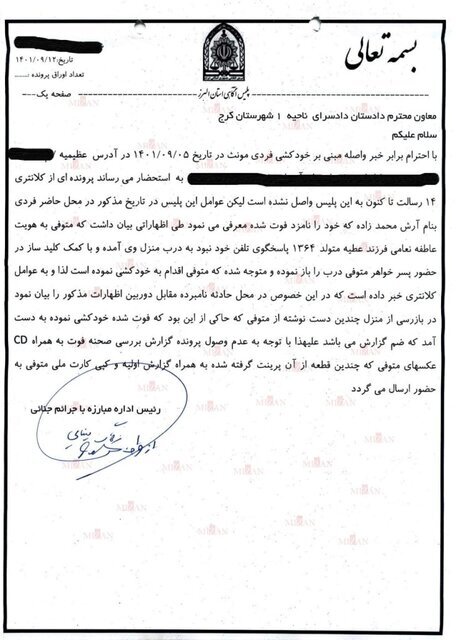 بسمه تعالی
تاریخ:۱۴۰۱/۰۹/۱۲
تعداد اوراق پرونده :......
پلیس آگاهی استان البرز
صفحه یک
معاون محترم دادستان دادسرای ناحیه ۱ شهرستان کرج
سلام علیکم
با احترام برابر خبر واصله مبنی بر خودکشی فردی مونث در تاریخ ۱۴۰۱/۰۹/۰۵ در آدرس عظیمیه
به استحضار می رساند پرونده ای از کلانتری
۱۴ رسالت تا کنون به این پلیس واصل نشده است لیکن عوامل این پلیس در تاریخ مذکور در محل حاضر فردی
بنام آرش محمد زاده که خود را نامزد فوت شده معرفی می نمود طی اظهاراتی بیان داشت که متوفی به هویت
عاطفه نعامی فرزند عطیه متولد ۱۳۶۴ پاسخگوی تلفن خود نبود به درب منزل وی آمده و با کمک کلید ساز در
حضور پسر خواهر متوفی درب را باز نموده و متوجه شده که متوفی اقدام به خودکشی نموده است لذا و به عوامل
کلانتری خبر داده است که در این خصوص در محل حادثه نامبرده مقابل دوربین اظهارات مذکور را بیان نمود
در بازرسی از منزل چندین دست نوشته از متوفی که حاکی از این بود که فوت شده خودکشی نموده به دست
آمد که ضم گزارش می باشد علیهذا با توجه به عدم وصول پرونده گزارش بررسی صحنه فوت به همراه CD
عکسهای متوفی که چندین قطعه از آن پرینت گرفته شده به همراه گزارش اولیه و کپی کارت ملی متوفی به
حضور ارسال می گردد
رئیس اداره مبارزه با جرائم جنائی
MIZAN